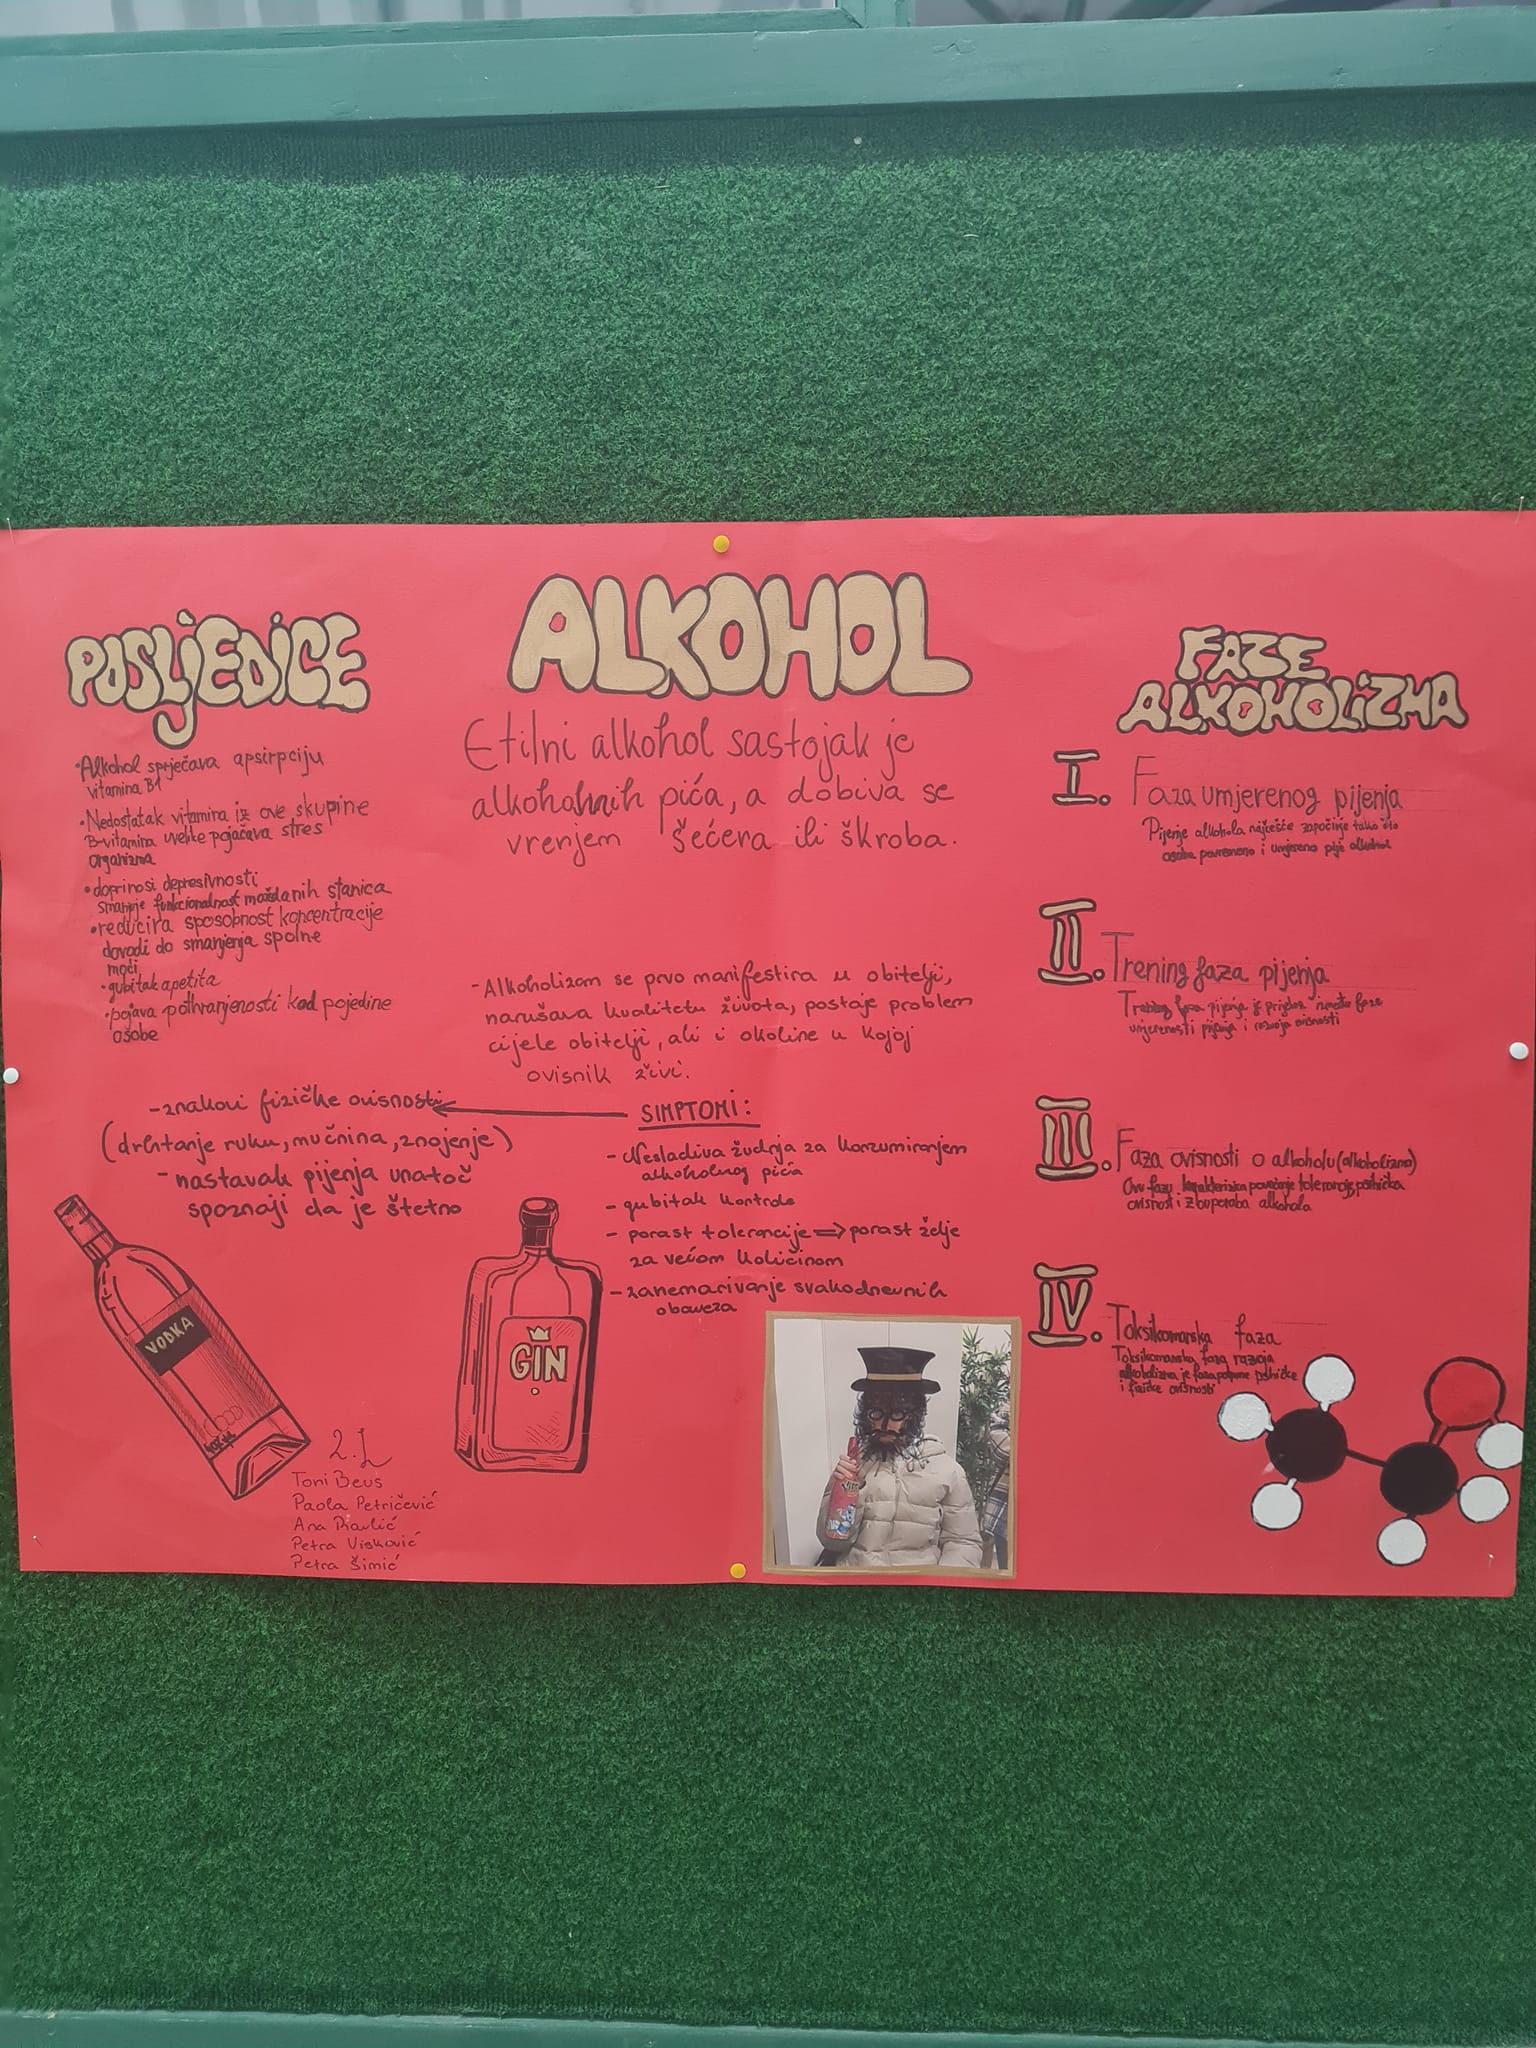 POSLJEDICE
•Alkohol sprječava apsirpciju
vitamina B1
•Nedostatak vitamina iz ove skupine
B-vitamina uvelike pojačava stres
organizma
•doprinosi depresivnosti
smanjuje funkcionalnost moždanih stanica
•reducira sposobnost koncentracije
dovodi do smanjenja spolne
moći
•gubitak apetita
•pojava pothranjenosti kod pojedine
osobe
ALKOHOL
Etilni alkohol sastojak je
alkoholnih pića, a dobiva se
vrenjem šećera ili škroba.
-Alkoholizam se prvo manifestira u obitelji,
narušava kvalitetu života, postaje problem
cijele obitelji, ali i okoline u kojoj
ovisnik živi.
SIMPTOMI:
-Nesladiva žudnja za konzumiranjem
alkoholnog pića
-gubitak kontrole
-porast tolerancije ⇒ porast želje
za većom količinom
-zanemarivanje svakodnevnih
obaveza
-znakovi fizičke ovisnosti
(drhtanje ruku, mučnina, znojenje)
-nastavak pijenja unatoč
spoznaji da je štetno
VODKA
GIN
2.L
Toni Beus
Paola Petričević
Ana Pavlić
Petra Visković
Petra Šimić
FAZE
ALKOHOLiZMA
I. Faza umjerenog pijenja
Pijenje alkohola najčešće započinje tako što
osoba povremeno i umjereno pije alkohol
II. Trening faza pijenja
Trening faza pijenja je prijelaz između faze
umjerenosti pijenja i razvoja ovisnosti
III. Faza ovisnosti o alkoholu (alkoholizma)
Ovu fazu karakterizira povećanje tolerancije, psihička
ovisnost i zlouporaba alkohola
IV. Toksikomanska faza
Toksikomanska faza razvoja
alkoholizma je faza potpune psihičke
i fizičke ovisnosti